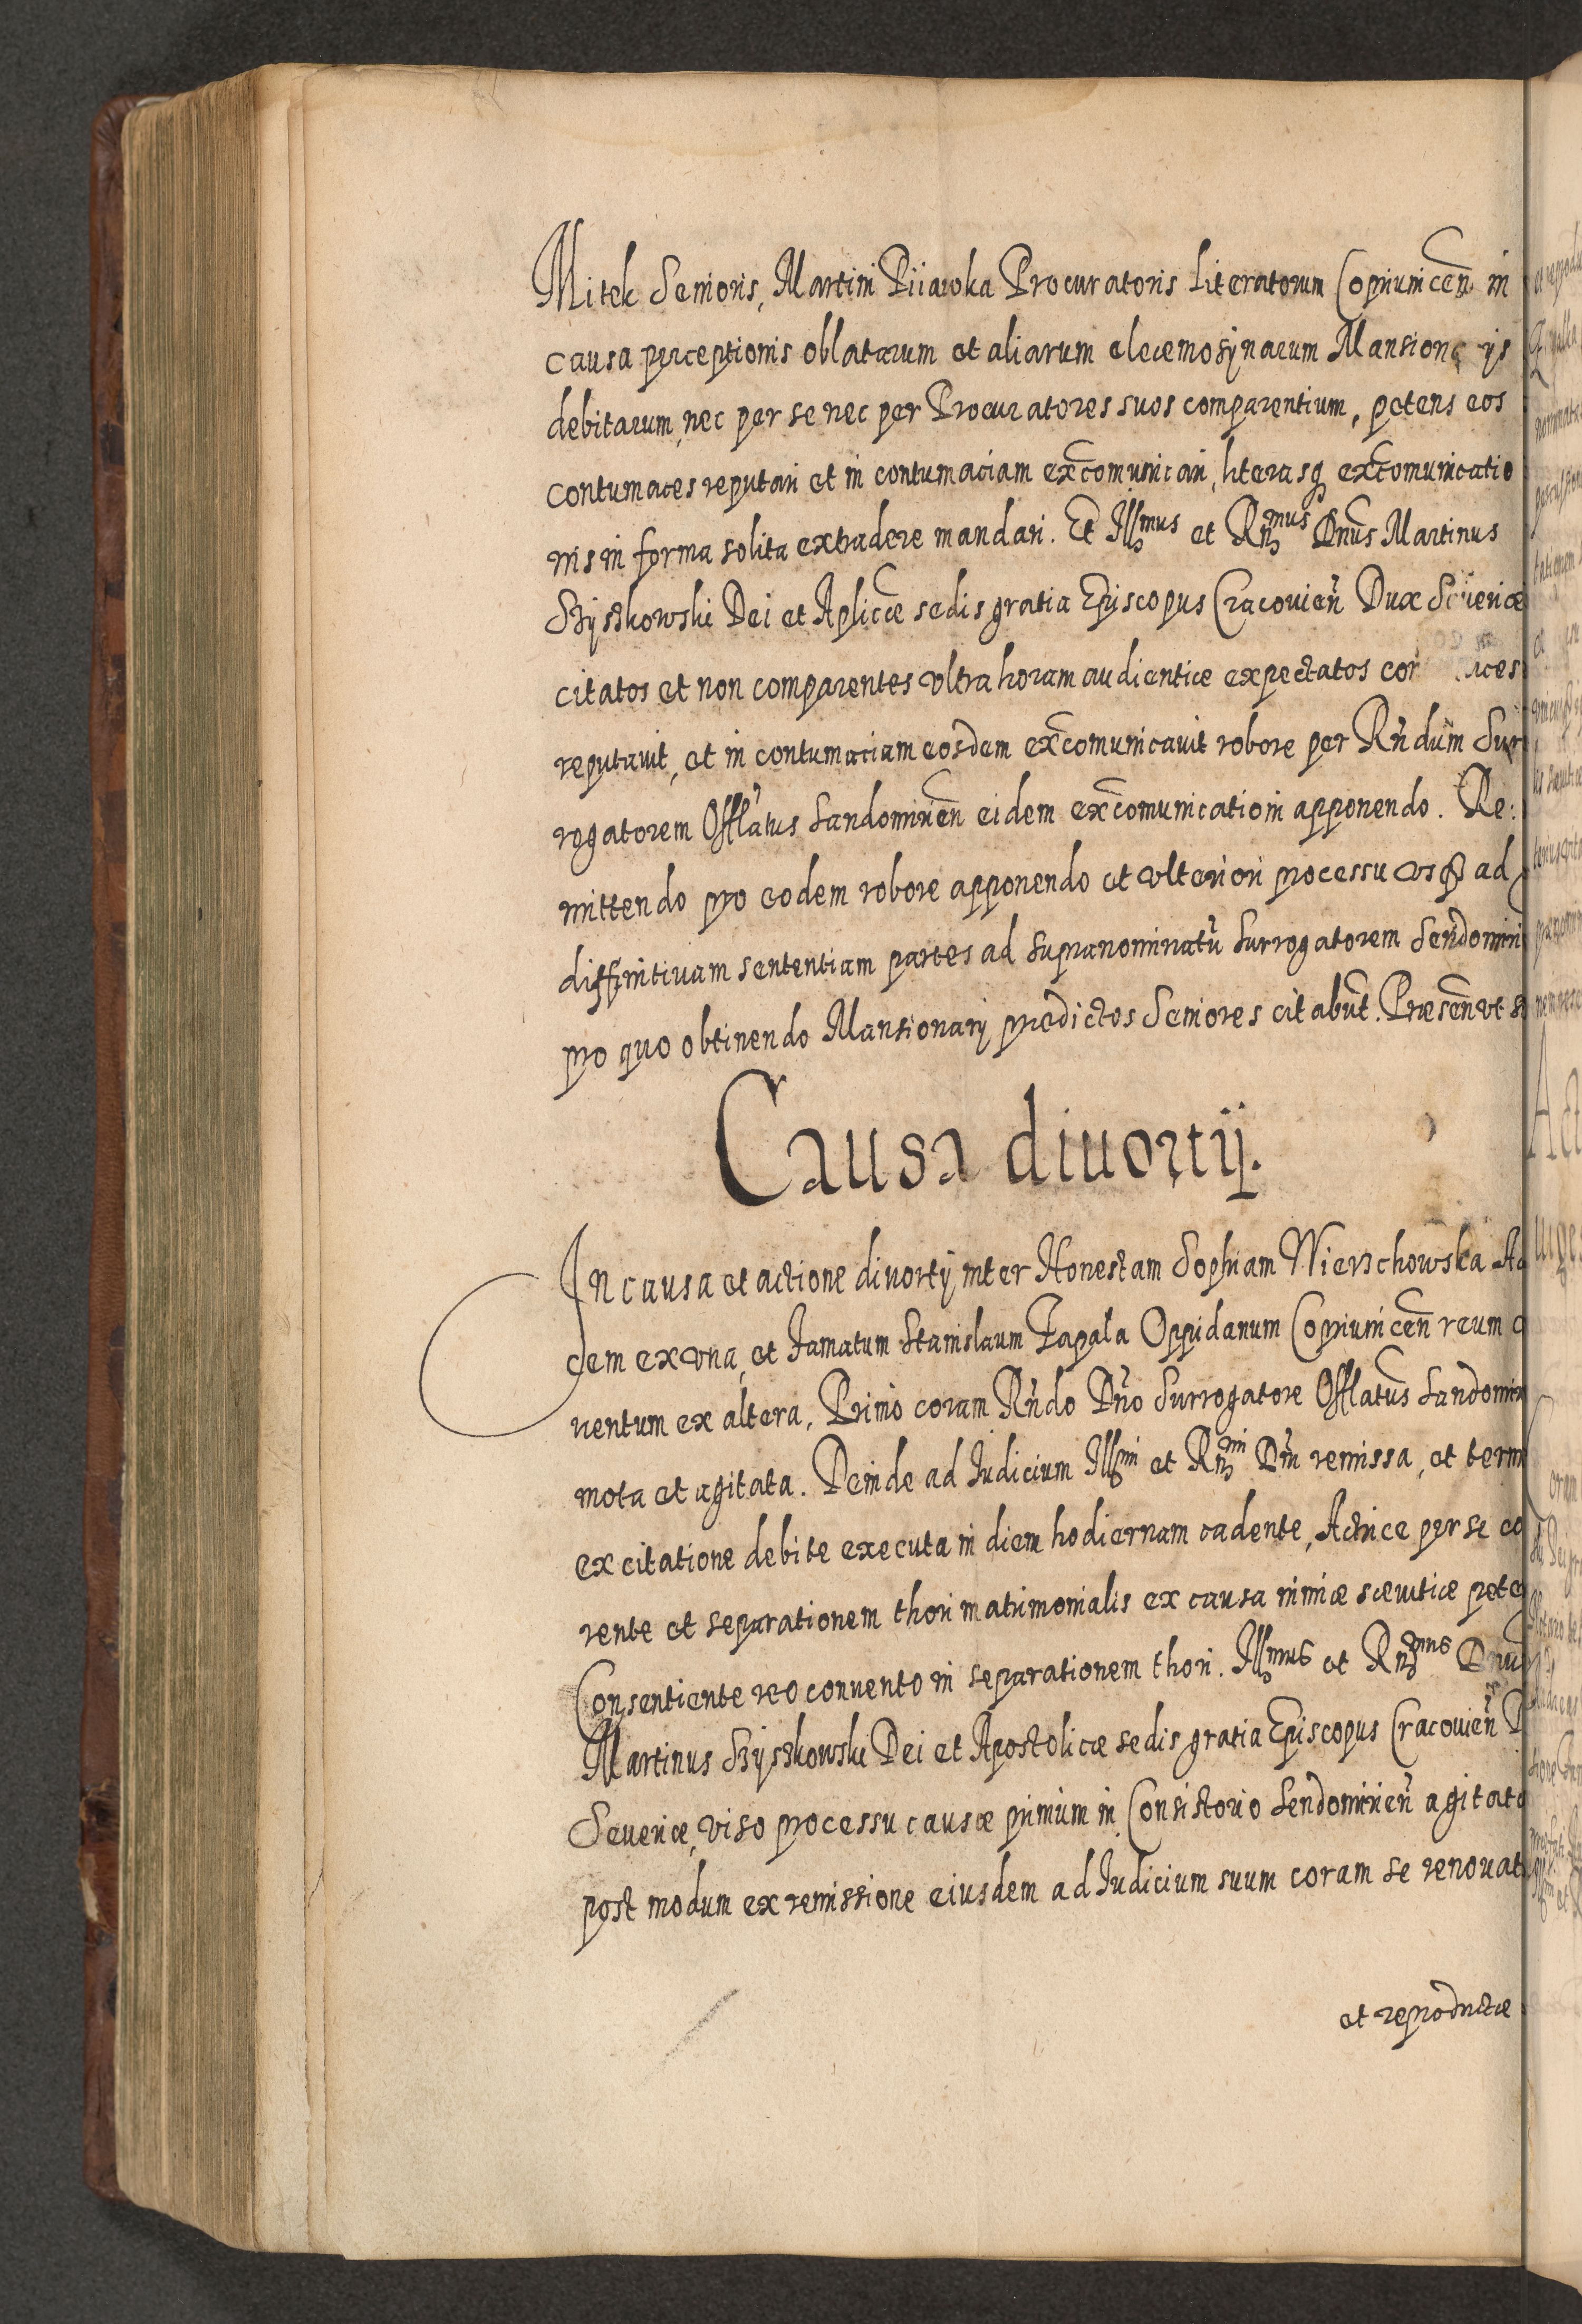 Mitek Senioris, Martini Piiawka Procuratoris Literatorum Copriuincen̄ in
causa perceptionis oblatarum et aliarum elecemosÿnarum Mansion ijs
debitarum, nec per se nec per Procuratores suos comparentium, petens eos
contumaces reputari et in contumaciam exc̄omunicari, literasq exc̄omunicatio
nis in forma solita extradere mandari. Et Illmus et Rn̄mus Dn̄us Martinus
Szÿszkowski Dei et Aplicæ sedis gratia Episcopus Cracouien̄ Dux Seueriæ
citatos et non comparentes vltra horam audientiæ expectatos con ces
reputauit, et in contumaciam eosdem exc̄omunicauit robore per Rn̄dum Sur
rogatorem Offl̄atus Sandomirien̄ eidem exc̄omunicationi apponendo. Re:
mittendo pro eodem robore apponendo et vlteriori processu vsq ad
diffinitiuam sententiam partes ad supranominatū Surrogatorem Sendomiri
pro quo obtinendo Mansionarij prædictos Seniores citabūt. Præsen̄ vt s
Causa diuortij.
In causa et actione diuortij inter Honestam Sophiam Wierzchowska Ac
cem ex vna, et Famatum Stanislaum Papala Oppidanum Copriuincen̄ reum c
uentum ex altera, Primo coram Rn̄do Dn̄o Surrogatore Offl̄atus Sandomir
mota et agitata. Deinde ad Iudicium Illmi et Rn̄mi Dn̄i remissa, et term
ex citatione debite executa in diem hodiernam cadente, Actrice per se co
rente et separationem thori matrimonialis ex causa nimiæ sæuitiæ pete
Consentiente reo conuento in separationem thori. Illmus et Rn̄mus Dn̄us
Martinus Szÿszkowski Dei et Apostolicæ sedis gratia Episcopus Cracouien̄ D
Seueriæ, viso processu causæ primum in Consistorio Sendomirien̄ agitatæ
post modum ex remissione eiusdem ad Iudicium suum coram se renouat
et reproductæ